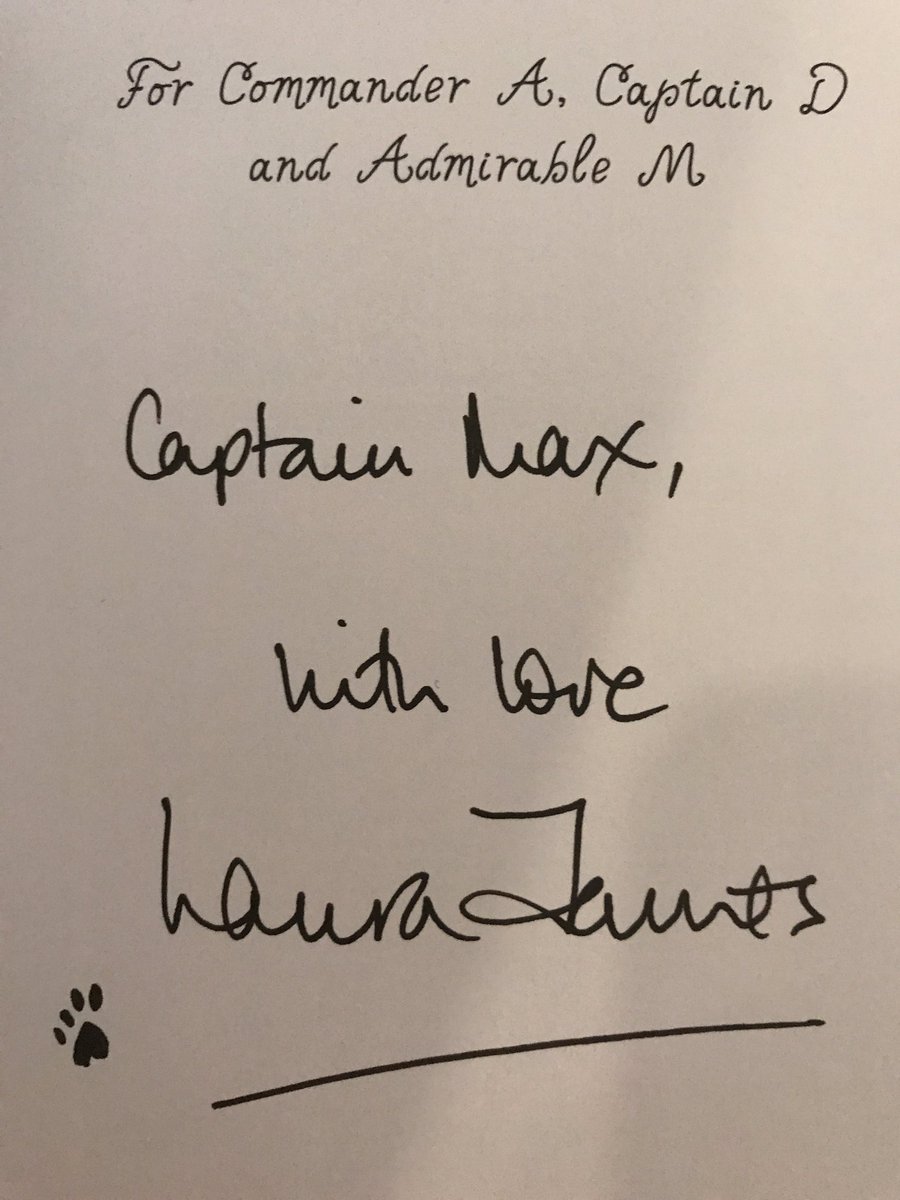 For Commander A, Captain D
and Admirable M
Captain Max,
with love
Laura James